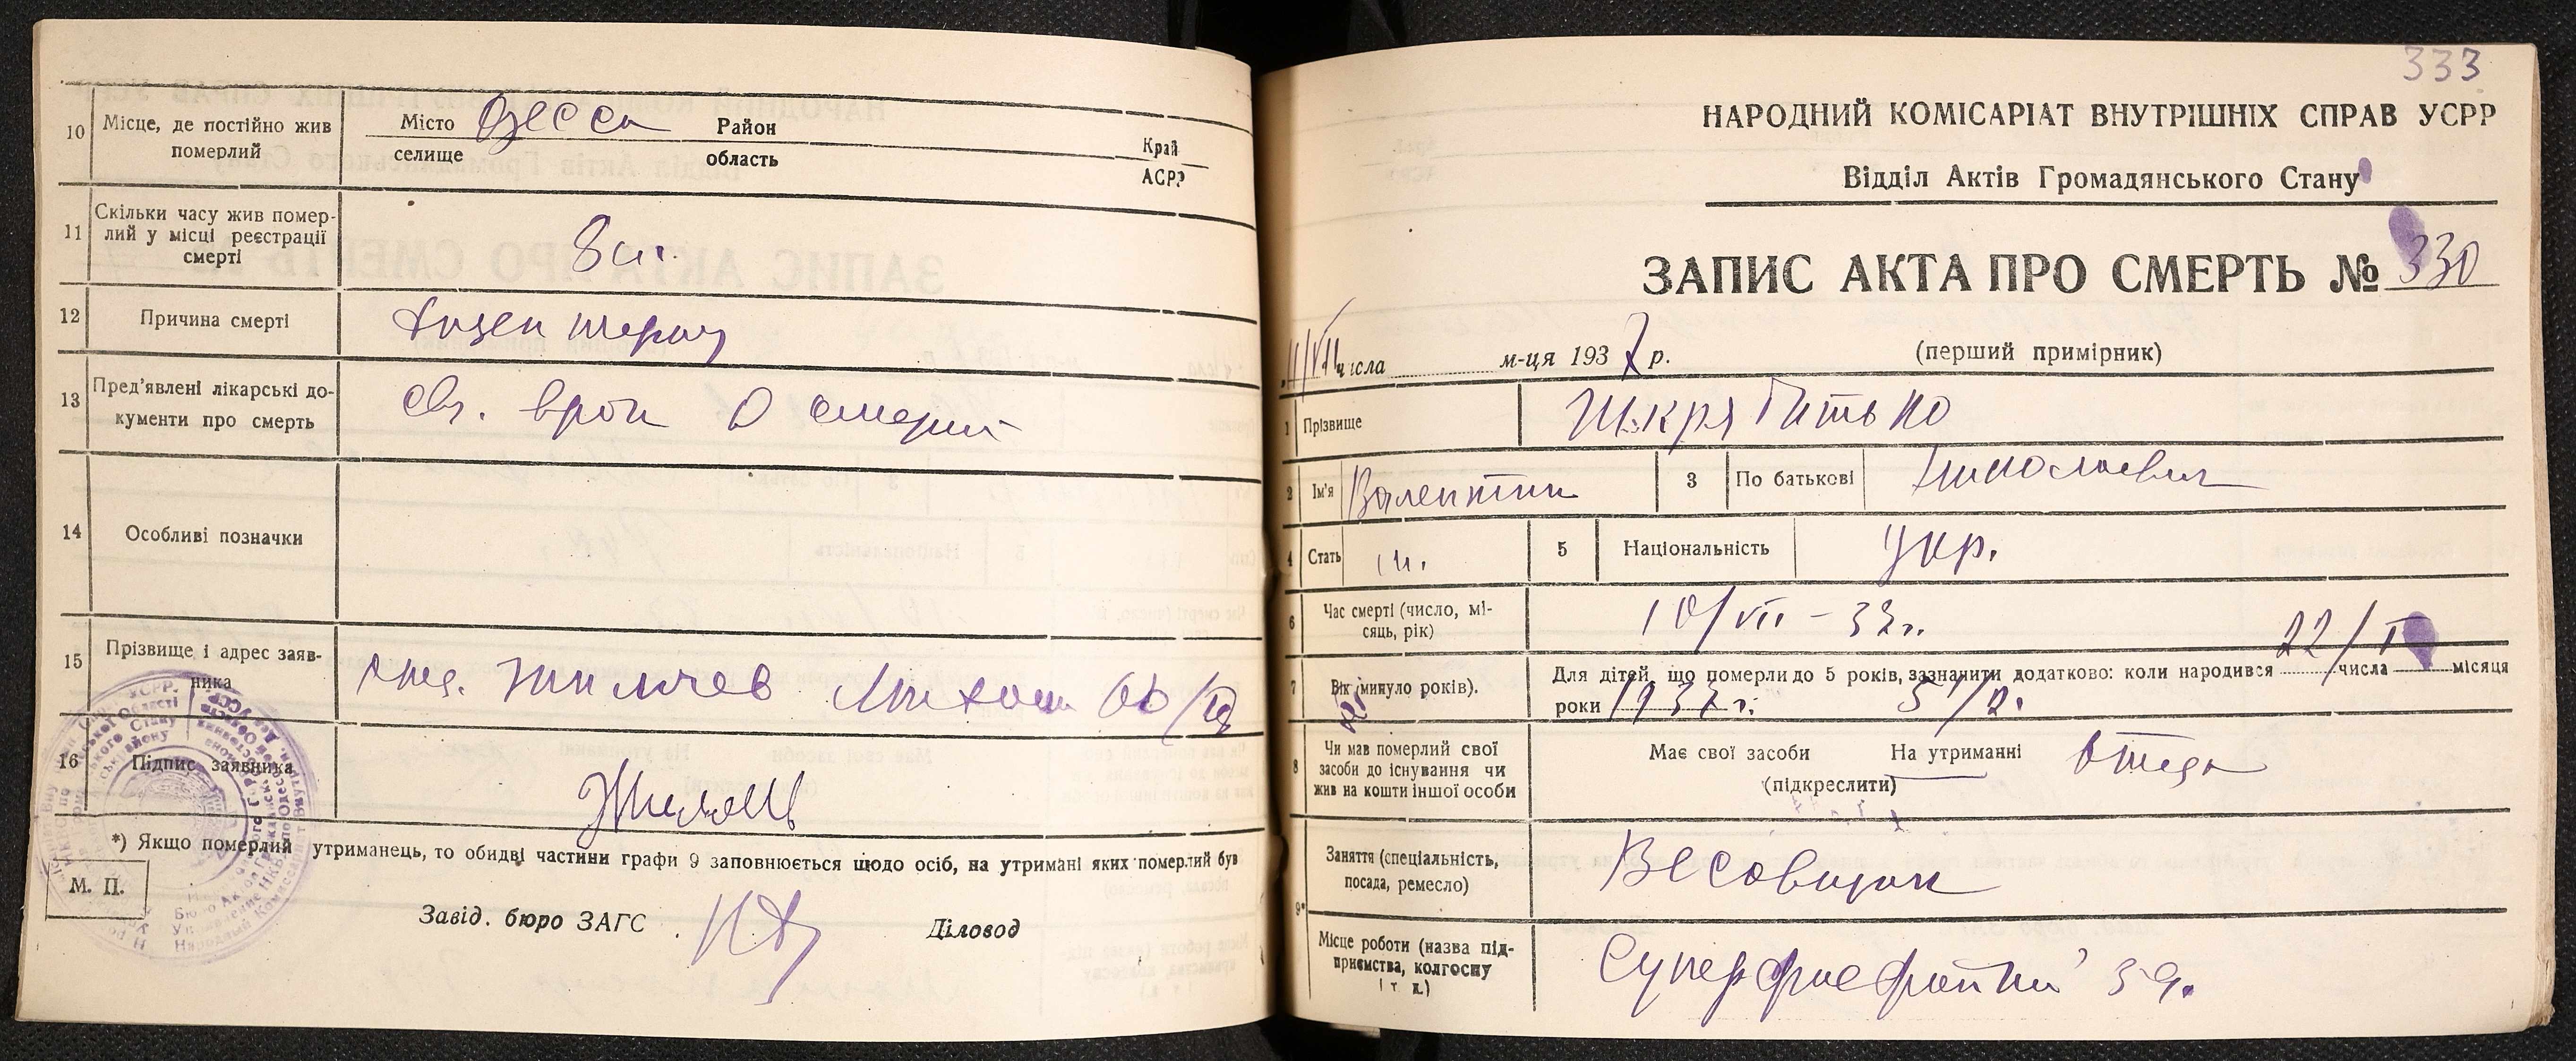 10 Місце, де постійно жив померлий
Місто Одесса Район Край
селище область АСРР
11 Скільки часу жив помер-
лий у місці реєстрації
смерті
12 Причина смерті
13 Пред'явлені лікарські до-
кументи про смерть
врач о смерти
14 Особливі позначки
15 Прізвище і адрес заяв-
ника
16 Підпис заявника
*) Якщо померлий утриманець, то обидві частини графи 9 заповнюється щодо осіб, на утримані яких померлий був
М. П.
Завід. бюро ЗАГС Діловод
333
НАРОДНИЙ КОМІСАРІАТ ВНУТРІШНІХ СПРАВ УСРР
Відділ Актів Громадянського Стану
ЗАПИС АКТА ПРО СМЕРТЬ № 330
11/VII числа м-ця 1937 р. (перший примірник)
1 Прізвище
2 Ім'я Валентин 3 По батькові Николаевич
4 Стать м. 5 Національність укр.
6 Час смерті (число, мі-
сяць, рік)
10/VII - 37 г.
7 Вік (минуло років).
Для дітей, що померли до 5 років, зазначити додатково: коли народився 22/I числа місяця
роки 1937 г.
8 Чи мав померлий свої
засоби до існування чи
жив на кошти іншої особи
Має свої засоби На утриманні отца
(підкреслити)
9* Заняття (спеціальність,
посада, ремесло)
Весовщик
Місце роботи (назва під-
приємства, колгоспу
і т. д.)
Суперфосфатный